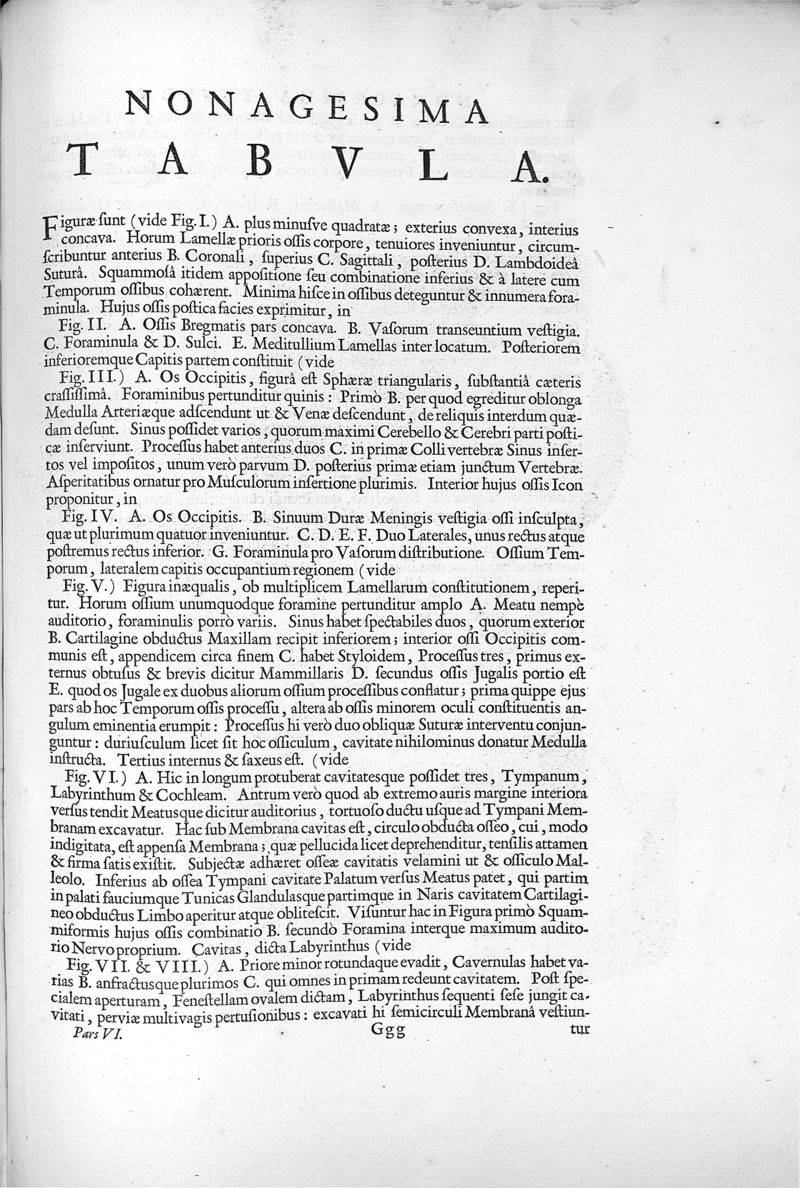 NONAGESIMA
TABVLA.
Figuræ ſunt (vide Fig. I.) A. plus minuſve quadratæ; exterius convexa, interius
concava. Horum Lamellæ prioris oſſis corpore, tenuiores inveniuntur, circum-
ſcribuntur anterius B. Coronali, ſuperius C. Sagittali, poſterius D. Lambdoideâ
Suturâ. Squammoſâ itidem appoſitione ſeu combinatione inferius & à latere cum
Temporum oſſibus cohærent. Minima hiſce in oſſibus deteguntur & innumera fora-
minula. Hujus oſſis poſtica facies exprimitur, in
Fig. II. A. Oſſis Bregmatis pars concava. B. Vaſorum transeuntium veſtigia.
C. Foraminula & D. Sulci. E. Meditullium Lamellas inter locatum. Poſteriorem
inferioremque Capitis partem conſtituit (vide
Fig. III.) A. Os Occipitis, figurâ eſt Sphæræ triangularis, ſubſtantiâ cæteris
craſſiſſimâ. Foraminibus pertunditur quinis: Primò B. per quod egreditur oblonga
Medulla Arteriæque adſcendunt ut & Venæ deſcendunt, de reliquis interdum quæ-
dam deſunt. Sinus poſſidet varios, quorum maximi Cerebello & Cerebri parti poſti-
cæ inſerviunt. Proceſſus habet anterius duos C. in primæ Colli vertebræ Sinus inſer-
tos vel impoſitos, unum verò parvum D. poſterius primæ etiam junctum Vertebræ.
Aſperitatibus ornatur pro Muſculorum inſertione plurimis. Interior hujus oſſis Icon
proponitur, in
Fig. IV. A. Os Occipitis. B. Sinuum Duræ Meningis veſtigia oſſi inſculpta,
quæ ut plurimum quatuor inveniuntur. C. D. E. F. Duo Laterales, unus rectus atque
poſtremus rectus inferior. G. Foraminula pro Vaſorum diſtributione. Oſſium Tem-
porum, lateralem capitis occupantium regionem (vide
Fig. V.) Figura inæqualis, ob multiplicem Lamellarum conſtitutionem, reperi-
tur. Horum oſſium unumquodque foramine pertunditur amplo A. Meatu nempè
auditorio, foraminulis porrò variis. Sinus habet ſpectabiles duos, quorum exterior
B. Cartilagine obductus Maxillam recipit inferiorem; interior oſſi Occipitis com-
munis eſt, appendicem circa finem C. habet Styloidem, Proceſſus tres, primus ex-
ternus obtuſus & brevis dicitur Mammillaris D. ſecundus oſſis Jugalis portio eſt
E. quod os Jugale ex duobus aliorum oſſium proceſſibus conflatur; prima quippe ejus
pars ab hoc Temporum oſſis proceſſu, altera ab oſſis minorem oculi conſtituentis an-
gulum eminentia erumpit: Proceſſus hi verò duo obliquæ Suturæ interventu conjun-
guntur: duriuſculum licet ſit hoc oſſiculum, cavitate nihilominus donatur Medulla
inſtructa. Tertius internus & ſaxeus eſt. (vide
Fig. VI.) A. Hic in longum protuberat cavitatesque poſſidet tres, Tympanum,
Labyrinthum & Cochleam. Antrum verò quod ab extremo auris margine interiora
verſus tendit Meatusque dicitur auditorius, tortuoſo ductu uſque ad Tympani Mem-
branam excavatur. Hac ſub Membrana cavitas eſt, circulo obducta oſſeo, cui, modo
indigitata, eſt appenſa Membrana; quæ pellucida licet deprehenditur, tenſilis attamen
& firma ſatis exiſtit. Subjectæ adhæret oſſeæ cavitatis velamini ut & oſſiculo Mal-
leolo. Inferius ab oſſea Tympani cavitate Palatum verſus Meatus patet, qui partim
in palati fauciumque Tunicas Glandulasque partimque in Naris cavitatem Cartilagi-
neo obductus Limbo aperitur atque obliteſcit. Viſuntur hac in Figura primò Squam-
miformis hujus oſſis combinatio B. ſecundò Foramina interque maximum audito-
rio Nervo proprium. Cavitas, dicta Labyrinthus (vide
Fig. VII. & VIII.) A. Priore minor rotundaque evadit, Cavernulas habet va-
rias B. anfractusque plurimos C. qui omnes in primam redeunt cavitatem. Poſt ſpe-
cialem aperturam, Feneſtellam ovalem dictam, Labyrinthus ſequenti ſeſe jungit ca-
vitati, perviæ multivagis pertuſionibus: excavati hi ſemicirculi Membranâ veſtiun-
Pars VI. Ggg tur